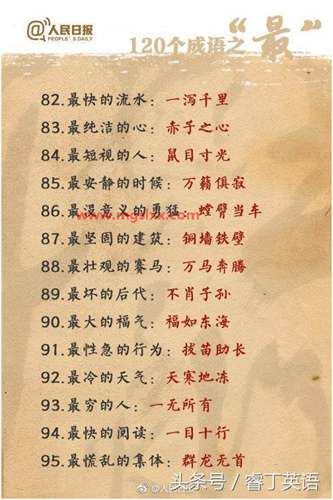 @人民日报
PEOPLE'S DAILY
120个成语之“最”
82.最快的流水：一泻千里
83.最纯洁的心：赤子之心
84.最短视的人：鼠目寸光
85.最安静的时候：万籁俱寂
86.最没意义的勇猛：螳臂当车
www.mgshxx.com
87.最坚固的建筑：铜墙铁壁
88.最壮观的赛马：万马奔腾
89.最坏的后代：不肖子孙
90.最大的福气：福如东海
91.最性急的行为：拔苗助长
92.最冷的天气：天寒地冻
93.最穷的人：一无所有
94.最快的阅读：一目十行
95.最慌乱的集体：群龙无首
@人民日报
头条号/睿丁英语